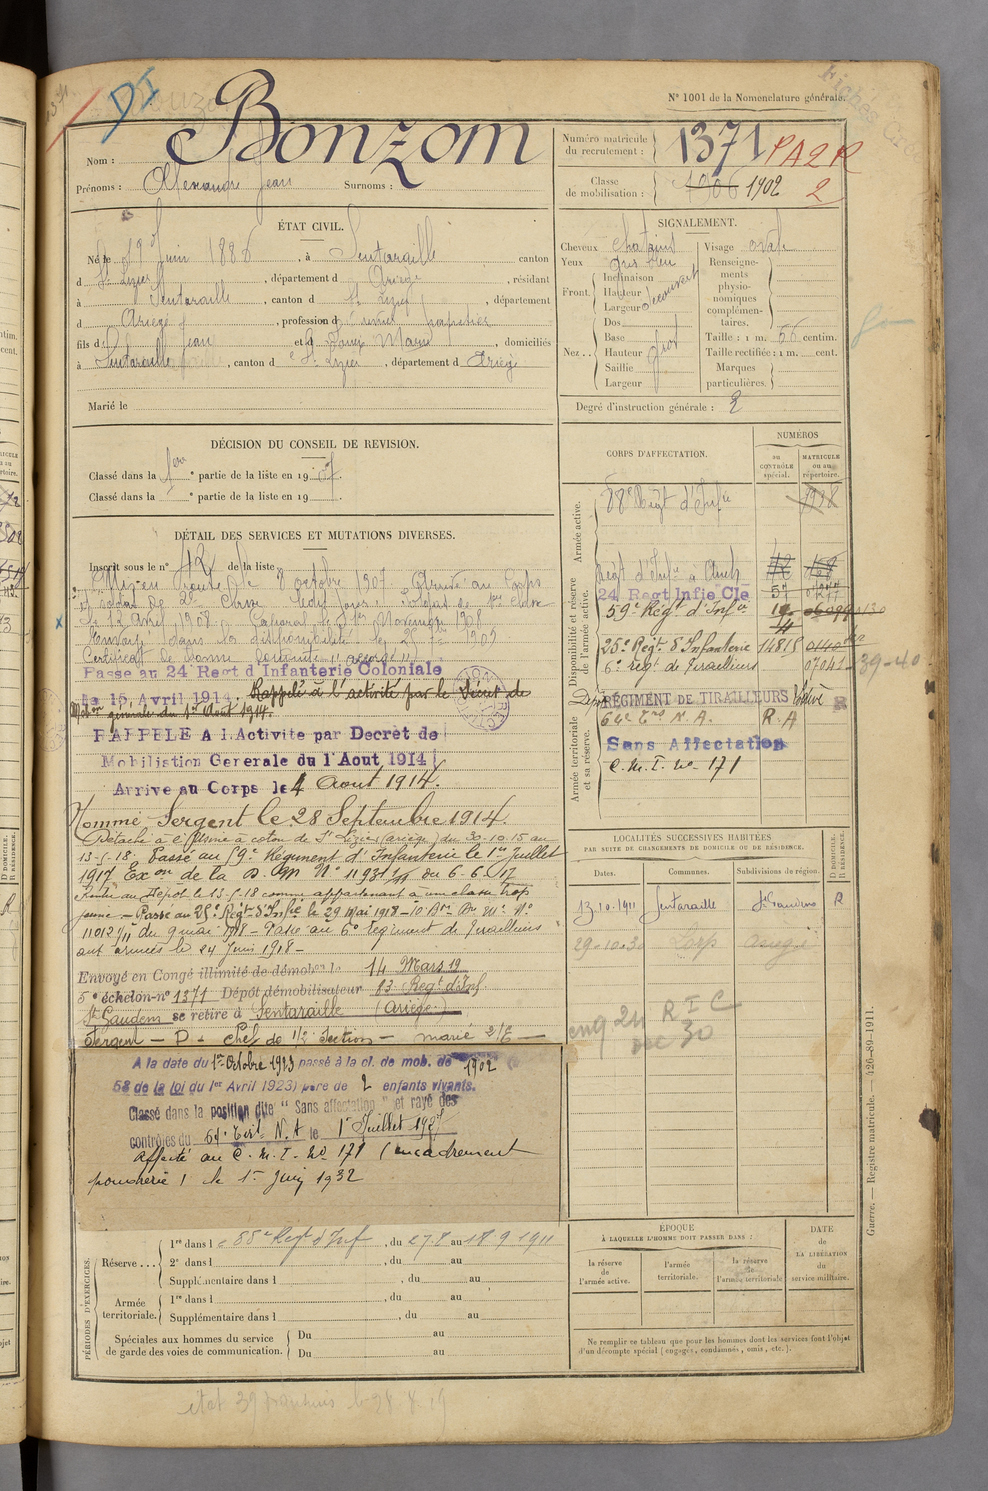 N° 1001 de la Nomenclature générale.
Bonzom
Nom :
Prénoms : Alexandre Jean Surnoms :
Numéro matricule du recrutement : 1371 PA2R
Classe de mobilisation : 1906 1902 2
ÉTAT CIVIL.
Né le 19 Juin 1886, à Sentaraille canton
d St Lizier, département d Ariège, résidant
à Sentaraille, canton d St Lizier, département
d Ariège, profession d papetier
fils d Jean et d Marie, domiciliés
à Sentaraille, canton d e St Lizier, département d Ariège
Marié le
SIGNALEMENT.
Cheveux chatains
Yeux gris bleu
Front. Inclinaison
Hauteur découvert
Largeur
Nez.. Dos
Base
Hauteur gros
Saillie
Largeur
Visage ovale
Renseignements physionomiques complémentaires.
Taille : 1 m. 66 centim.
Taille rectifiée : 1 m. cent.
Marques particulières.
Degré d'instruction générale : 2
DÉCISION DU CONSEIL DE REVISION.
Classé dans la 1ere e partie de la liste en 1907.
Classé dans la e partie de la liste en 19 .
DÉTAIL DES SERVICES ET MUTATIONS DIVERSES.
Inscrit sous le n° 42 de la liste
Mis en route le 8 octobre 1907. Arrivé au Corps
et soldat de 2e classe ledit jour. Soldat de 1re classe
le 12 avril 1908. Caporal le 1er Novembre 1908
Envoyé dans la disponibilité le 25 7 1909
Certificat de bonne conduite "accordé"
Passé au 24 Regt d'Infanterie Coloniale
le 15 Avril 1914. Rappelé à l'activité par le Décret de
Mobon générale du 1er Août 1914.
RAPPELE A l.Activite par Decret de
Mobilistion Generale du 1 Aout 1914
Arrive au Corps le 4 Aout 1914.
Nommé Sergent le 28 Septembre 1914.
Détaché à l'Usine à coton de St Lizier (ariège) du 30-10-15 au
13-5-18. Passé au 59e Régiment d'Infanterie le 1er Juillet
1917 Exon de la D. M N° 11931 du 6-6-17
Rentré au Dépôt le 13-5-18 comme appartenant à une classe trop
jeune - Passé au 25e Régt d'Infie le 29 Mai 1918 -
11012 1/11 du 9 mai 1918 - Passé au 6e régiment de Tirailleurs
aux armées le 24 Juin 1918 -
Envoyé en Congé illimité de démobon le 14 Mars 19
5e échelon-n° 1371 Dépôt démobilisateur 83 Regt d'Inf
St Gaudens se retire à Sentaraille (Ariège)
Sergent - P - Chef de 1/2 Section - marié 2/E -
A la date du 1er Octobre 1923 passé à la cl. de mob. de 1902
58 de la loi du 1er Avril 1923) père de 2 enfants vivants.
Classé dans la position dite "Sans affectation" et rayé des
contrôles du 64e Ter N.A le 1er Juillet 1927
Affecté au C.M.I. No 171 (encadrement
poudrerie) le 1er Juin 1932
CORPS D'AFFECTATION.
NUMÉROS
au CONTRÔLE spécial.
MATRICULE ou au répertoire.
Armée active.
88e Régt d'Infie
Disponibilité et réserve de l'armée active.
Régt d'Infie à Auch
24 Regt Infie Cle 57
59e Régt d'Infie
25e Régt d'Infanterie 14815
6e régt de Tirailleurs 07041
39-40
Armée territoriale et sa réserve.
Dépôt RÉGIMENT DE TIRAILLEURS
64e Ter N.A. R.A
Sans Affectation
C.M.I. No 171
LOCALITÉS SUCCESSIVES HABITÉES
PAR SUITE DE CHANGEMENTS DE DOMICILE OU DE RÉSIDENCE.
Dates. Communes. Subdivisions de région. D DOMICILE. R RÉSIDENCE.
13.10.1911 Sentaraille St Gaudens R
29-10-30 Lorp Ariège
24 R I C
30
ÉPOQUE
À LAQUELLE L'HOMME DOIT PASSER DANS :
la réserve de l'armée active.
l'armée territoriale.
la réserve de l'armée territoriale
DATE DE LA LIBÉRATION du service militaire.
Ne remplir ce tableau que pour les hommes dont les services font l'objet
d'un décompte spécial (engagés, condamnés, omis, etc.).
PÉRIODES D'EXERCICES.
Réserve...
1re dans l e 88e Regt d'Inf, du 27 8 au 18 9 1911
2e dans l , du au
Supplémentaire dans l , du au
Armée territoriale.
1re dans l , du au
Supplémentaire dans l , du au
Spéciales aux hommes du service de garde des voies de communication.
Du au
Du au
Guerre. — Registre matricule. — 426-89-1911.